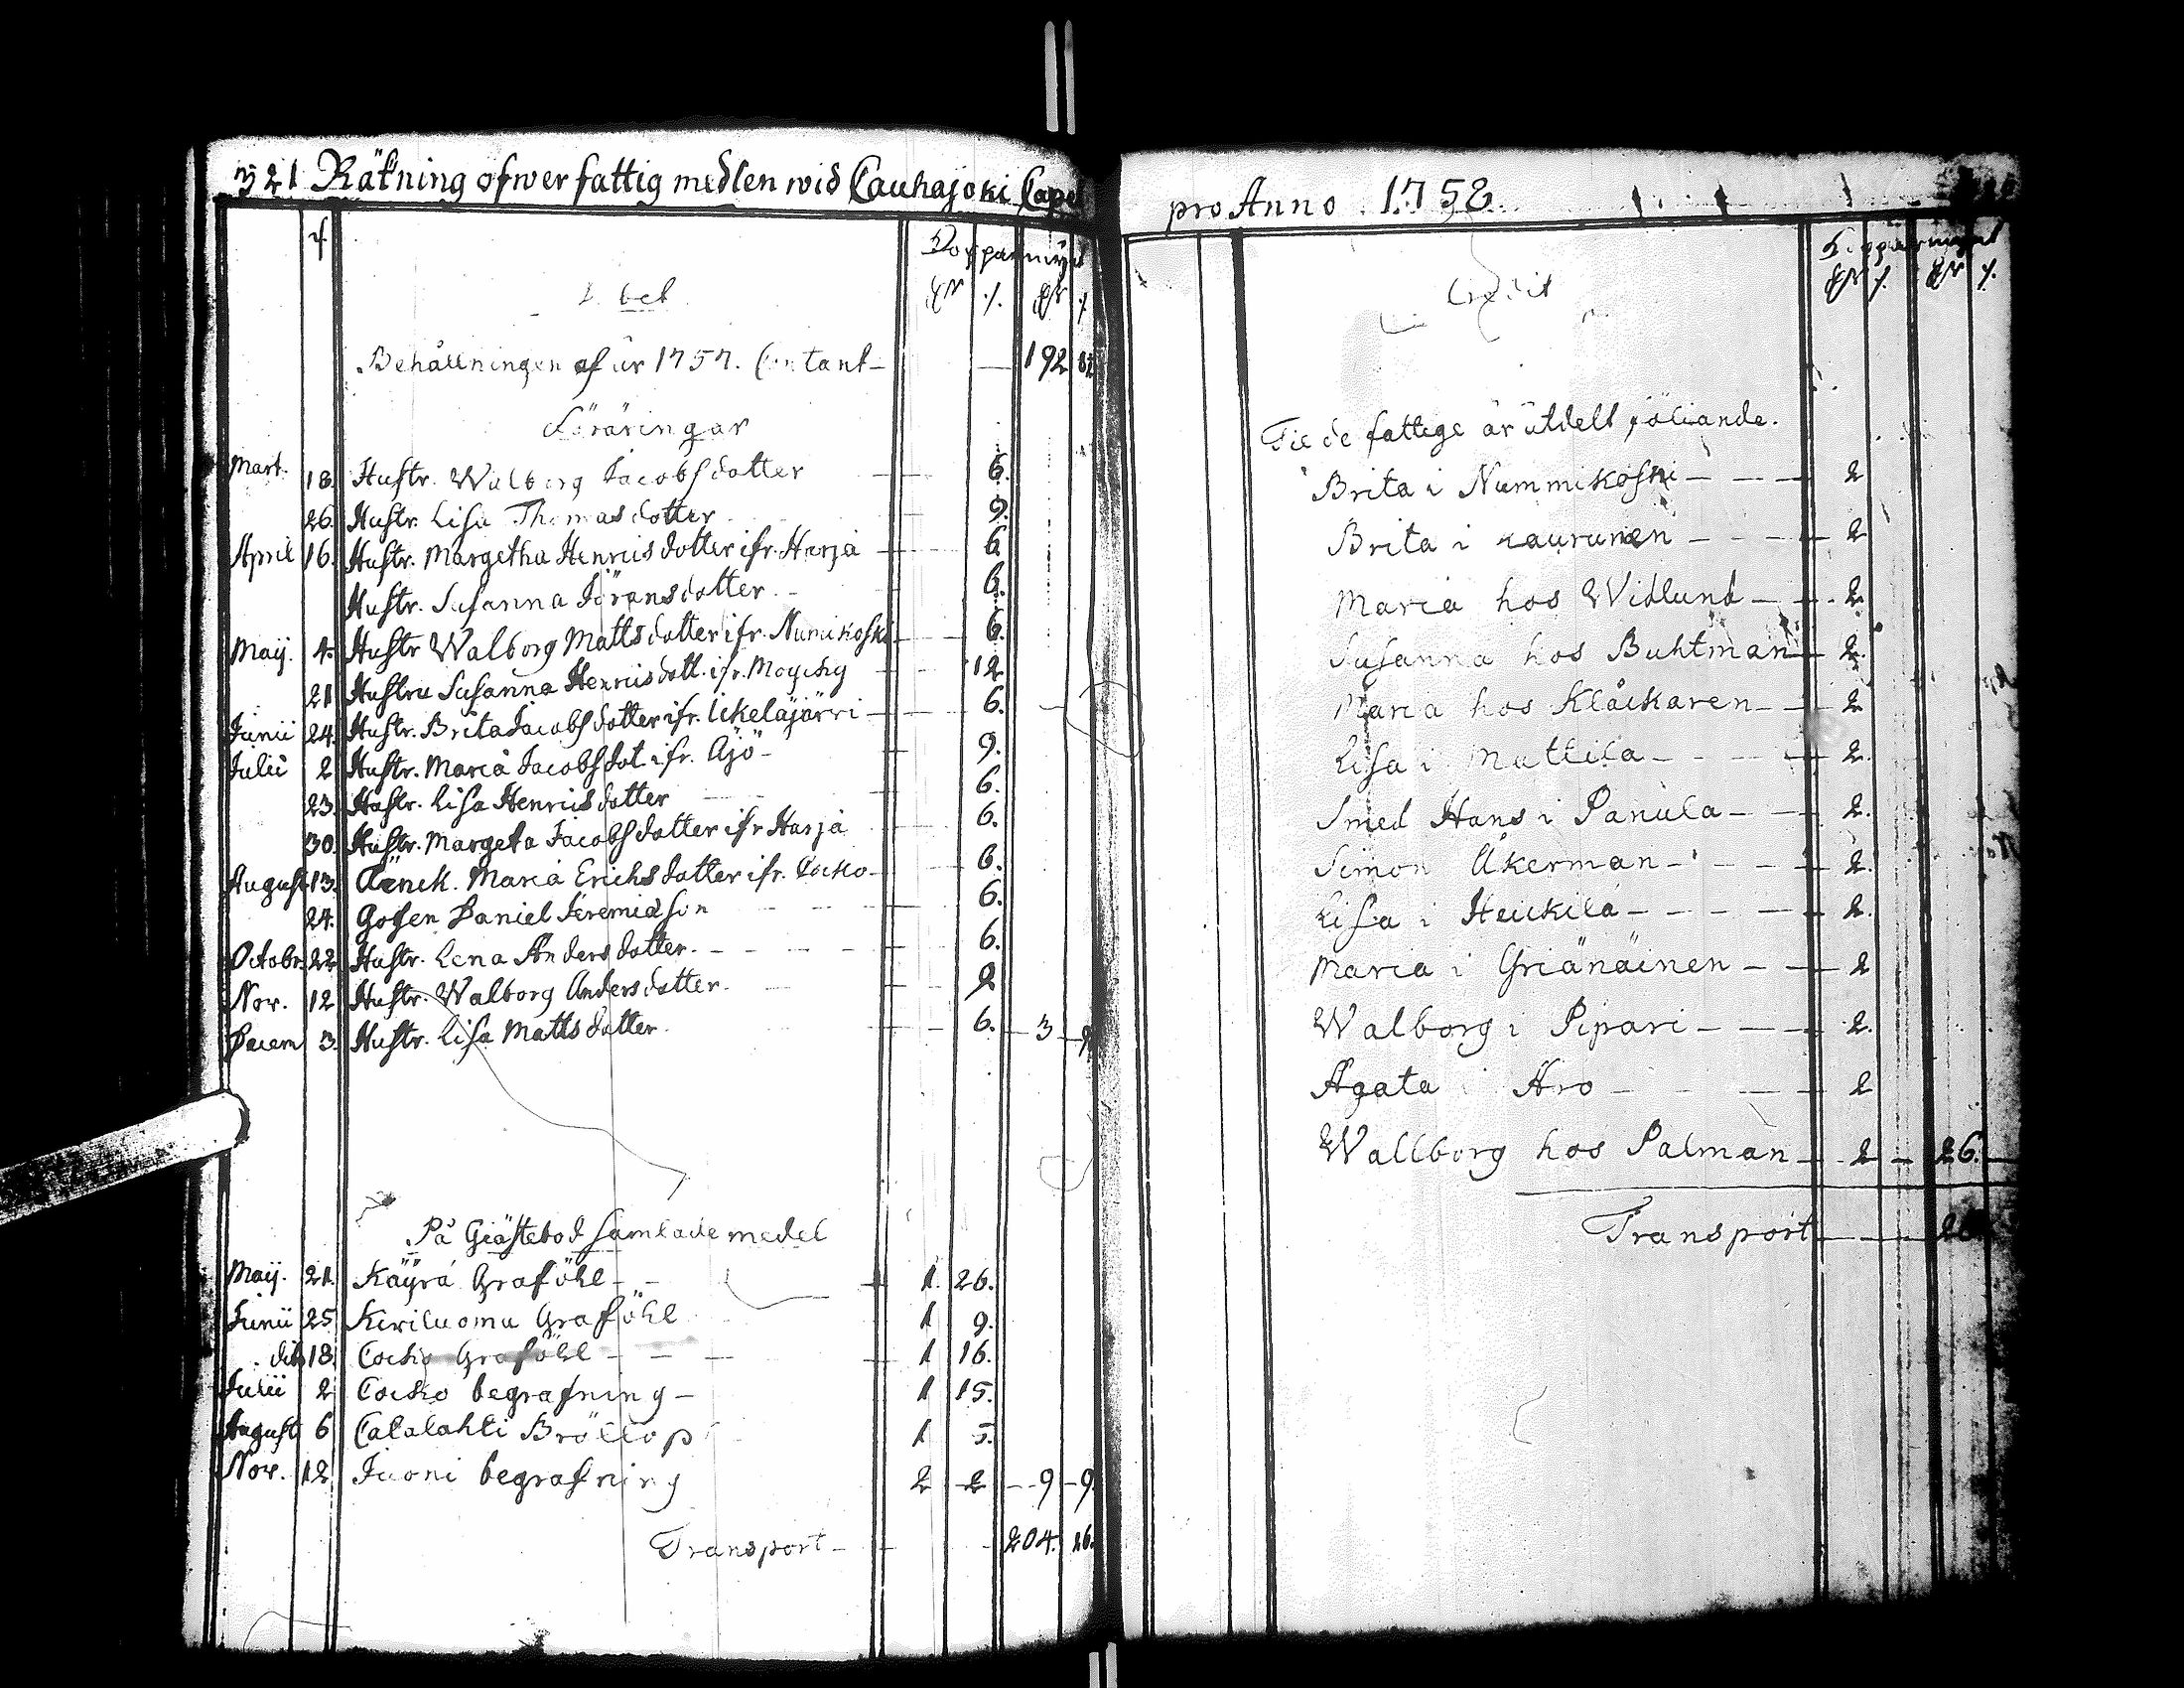 321 Räkning ofwer fattig medlen wid Cauhajoki Capel
Koppармynt
Debet
Behållningen af år 1757. Contant — 192
Föräringar
Mart. 18. Hustr. Walborg Jacobsdotter — 6.
26. Hustr. Lisa Thomasdotter 9.
April 16. Hustr. Margetha Henricsdotter ifr. Harja — 6.
Hustr. Susanna Jöransdotter — 6.
Maij. 4. Hustr Walborg Mattsdotter ifr. Numikoski — 6.
21 Hustru Susanna Henricsdott. ifr. — 12
Junii 24. Hustr. Brita Jacobsdotter ifr. Ikeläjärvi — 6.
Julii 2 Hustr. Maria Jacobsdot. ifr. Äjö — 9.
23. Hustr. Lisa Henricsdotter — 6.
30. Hustr. Margeta Jacobsdotter ifr Harja 6.
August 13. Änck. Maria Erichsdotter ifr. Cocko — 6.
24. Gossen Daniel Jeremiasson — 6.
Octobr. 22 Hustr. Lena Andersdotter. — 6.
Nov. 12 Hustr. Walborg Andersdotter. — 9
Decem 3. Hustr. Lisa Mattsdotter. — 6. — 3 — 9
På Giästebod samlade medel
Maij. 21. Käyrä Graföhl — 1. 26.
Junii 25 Kiriluoma Graföhl 1 9.
dito 18. Cocko Graföhl — 1 16.
Julii 2 Cocko begrafning — 1 15.
August 6 Catalahti Bröllop 1 5.
Nov. 12 Juoni begrafning 2 2 — 9 — 9.
Transport — 204. 26.
pro Anno 1758.
Kopparmynt
Credit
Til de fattige är utdelt följande.
Brita i Nummikoski — 2
Brita i Laurunen — 2
Maria hos Widlund — 2
Susanna hos Buhtman — 2.
Maria hos Klåckaren — 2
Lisa i Mattila — 2.
Smed Hans i Panula — 2.
Simon Åkerman — 2.
Lisa i Heickilä — 2.
Maria i Griänäinen — 2
Walborg i Pipari — 2.
Agata i Aro — 2
Wallborg hos Palman — 2 — 26.
Transport — 26